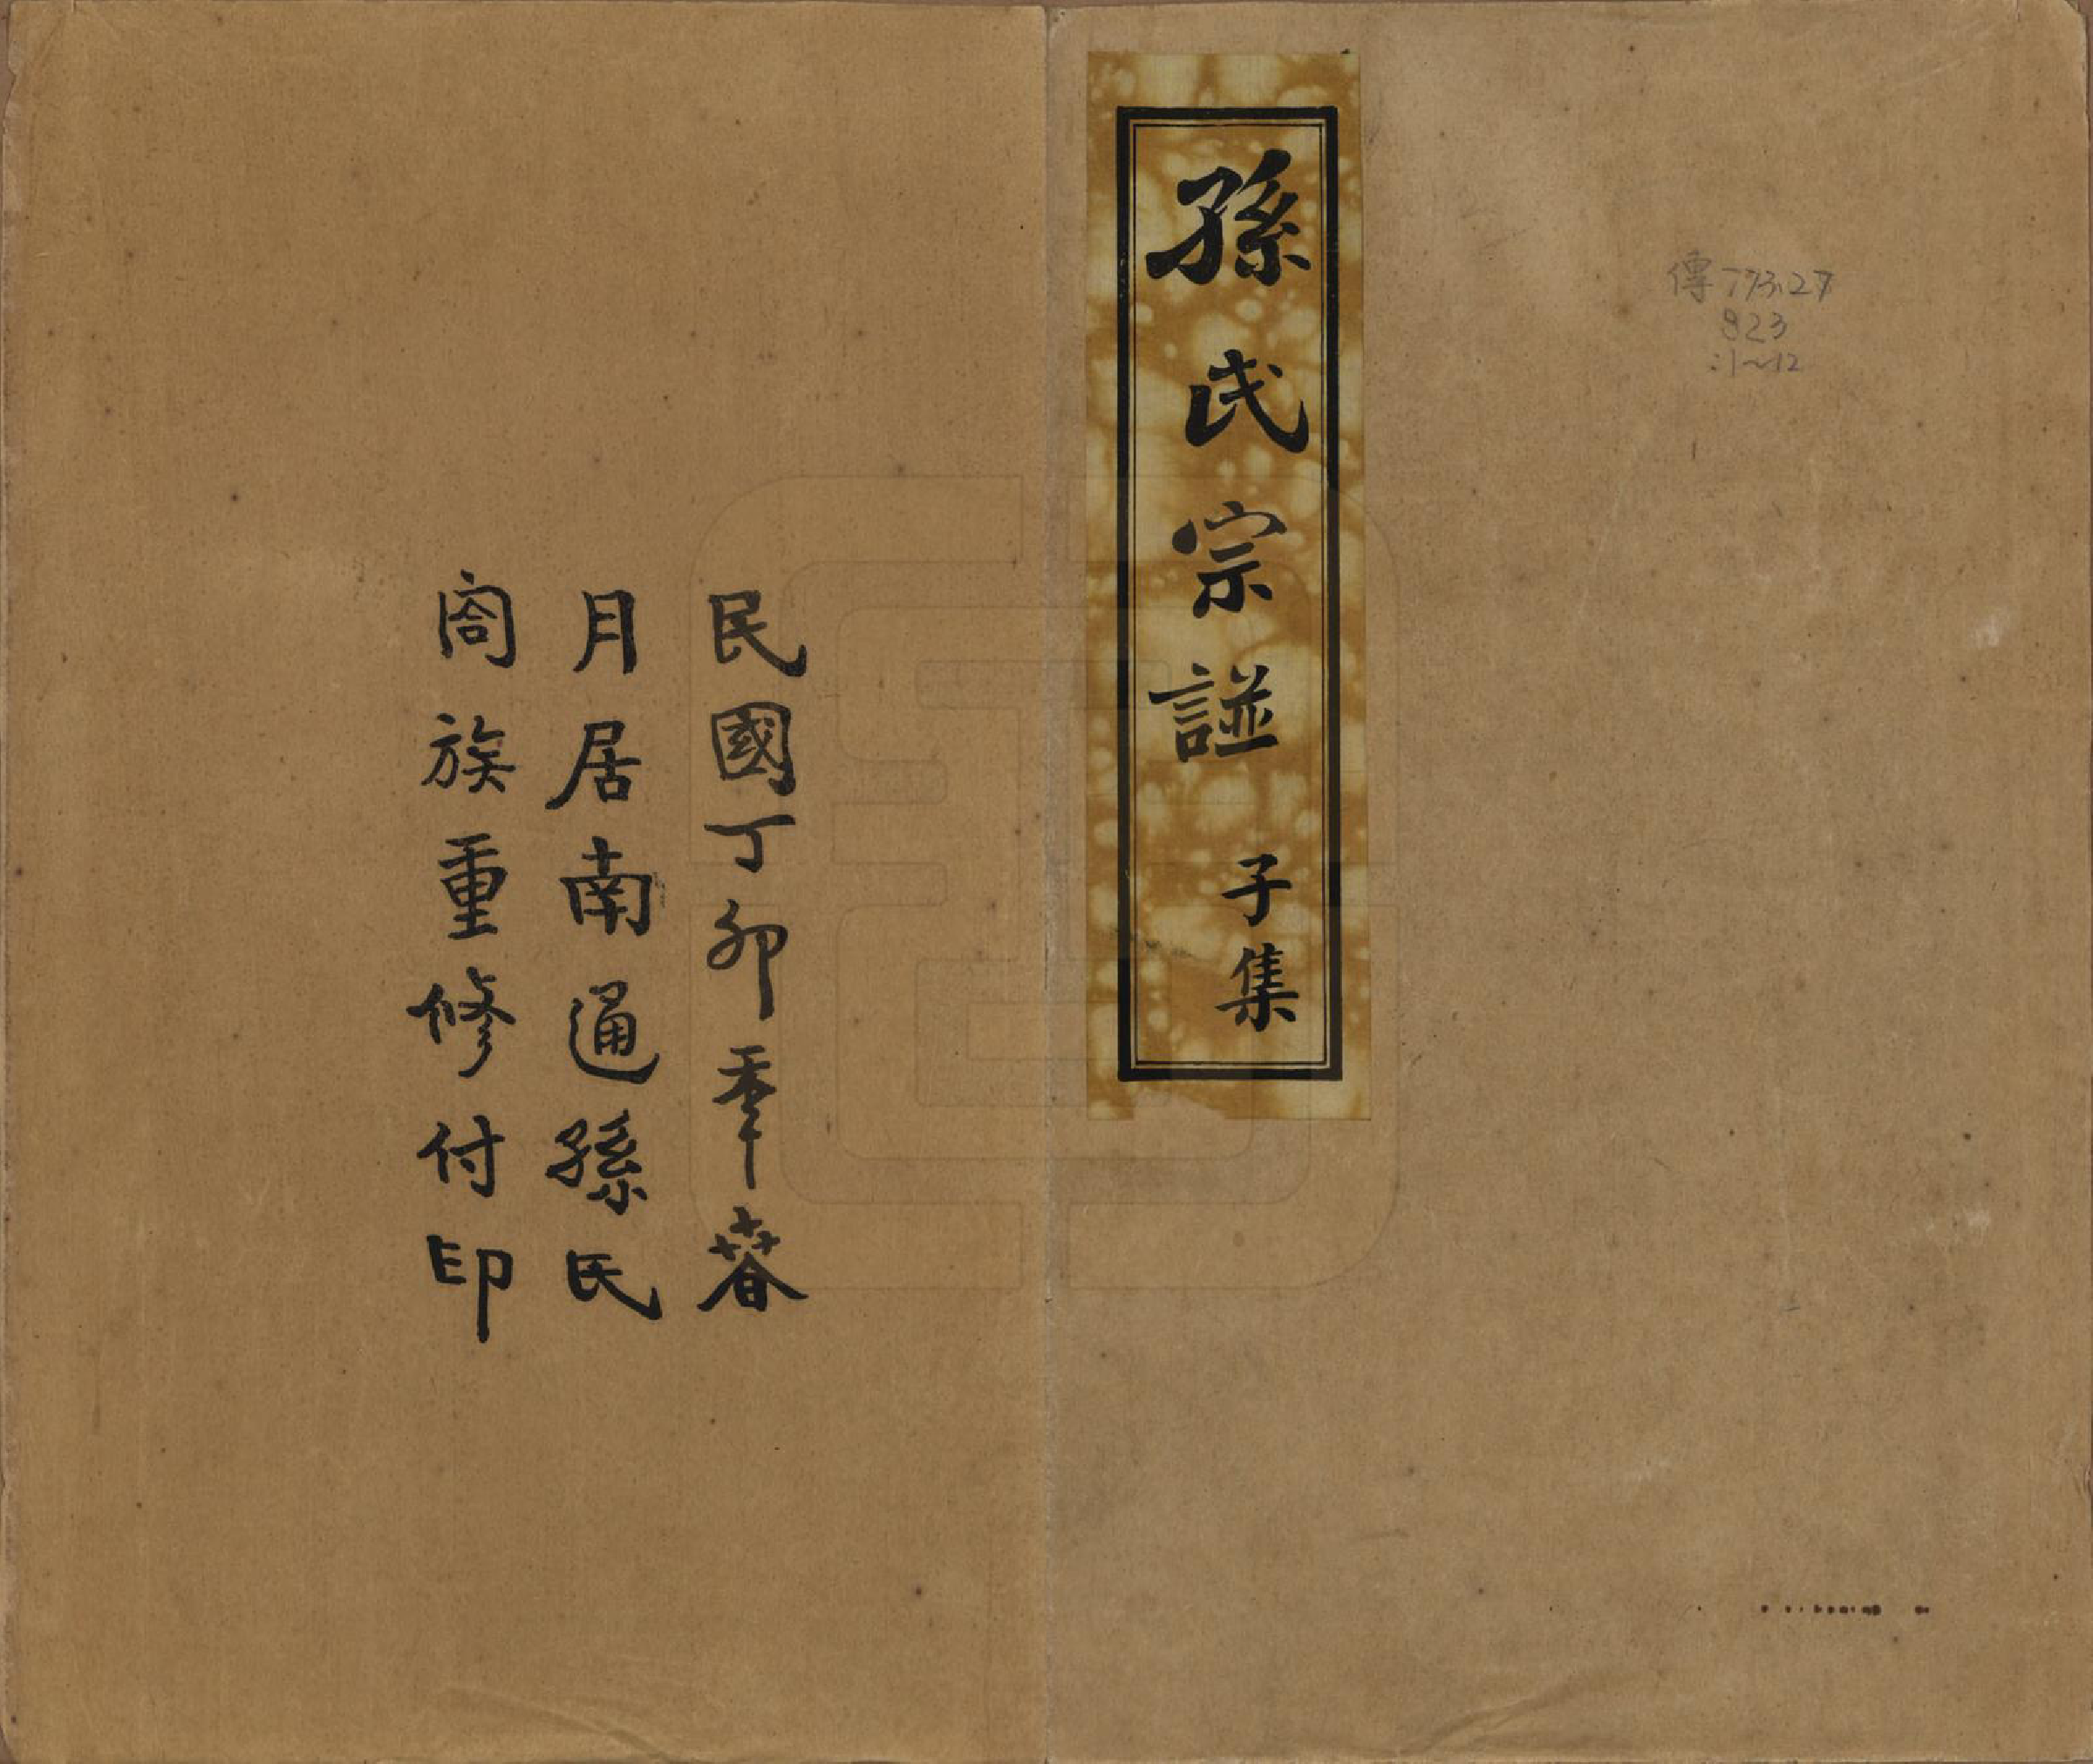 傳773.27
823
:1~12
孫氏宗譜 子集
民國丁卯季春
月居南通孫氏
閤族重修付印